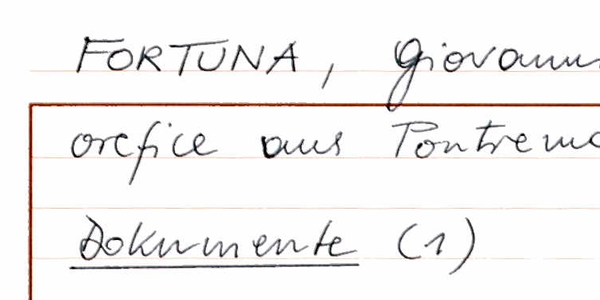 FORTUNA, Giovann
orefice aus Pontremo
Dokumente (1)